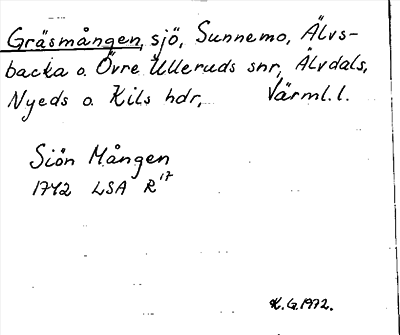 Gräsmången, sjö, Sunnemo, Älvs-
backa o. Övre Ulleruds snr, Älvdals,
Nyeds o. Kils hdr, Värml.l.
Siön Mången
1742 LSA R 17
K.G.1972.